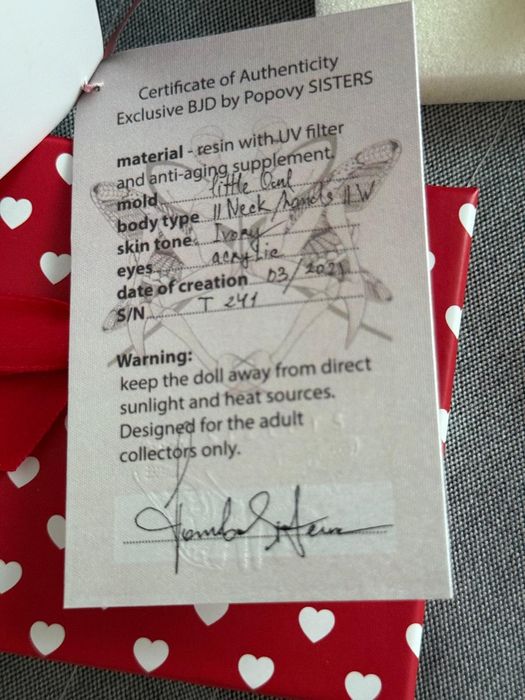 Certificate of Authenticity
Exclusive BJD by Popovy SISTERS
material - resin with UV filter
and anti-aging supplement.
mold little Owl
body type II Neck/hands II W
skin tone Ivory
eyes acrylic
date of creation 03/2021
S/N T 241
Warning:
keep the doll away from direct
sunlight and heat sources.
Designed for the adult
collectors only.